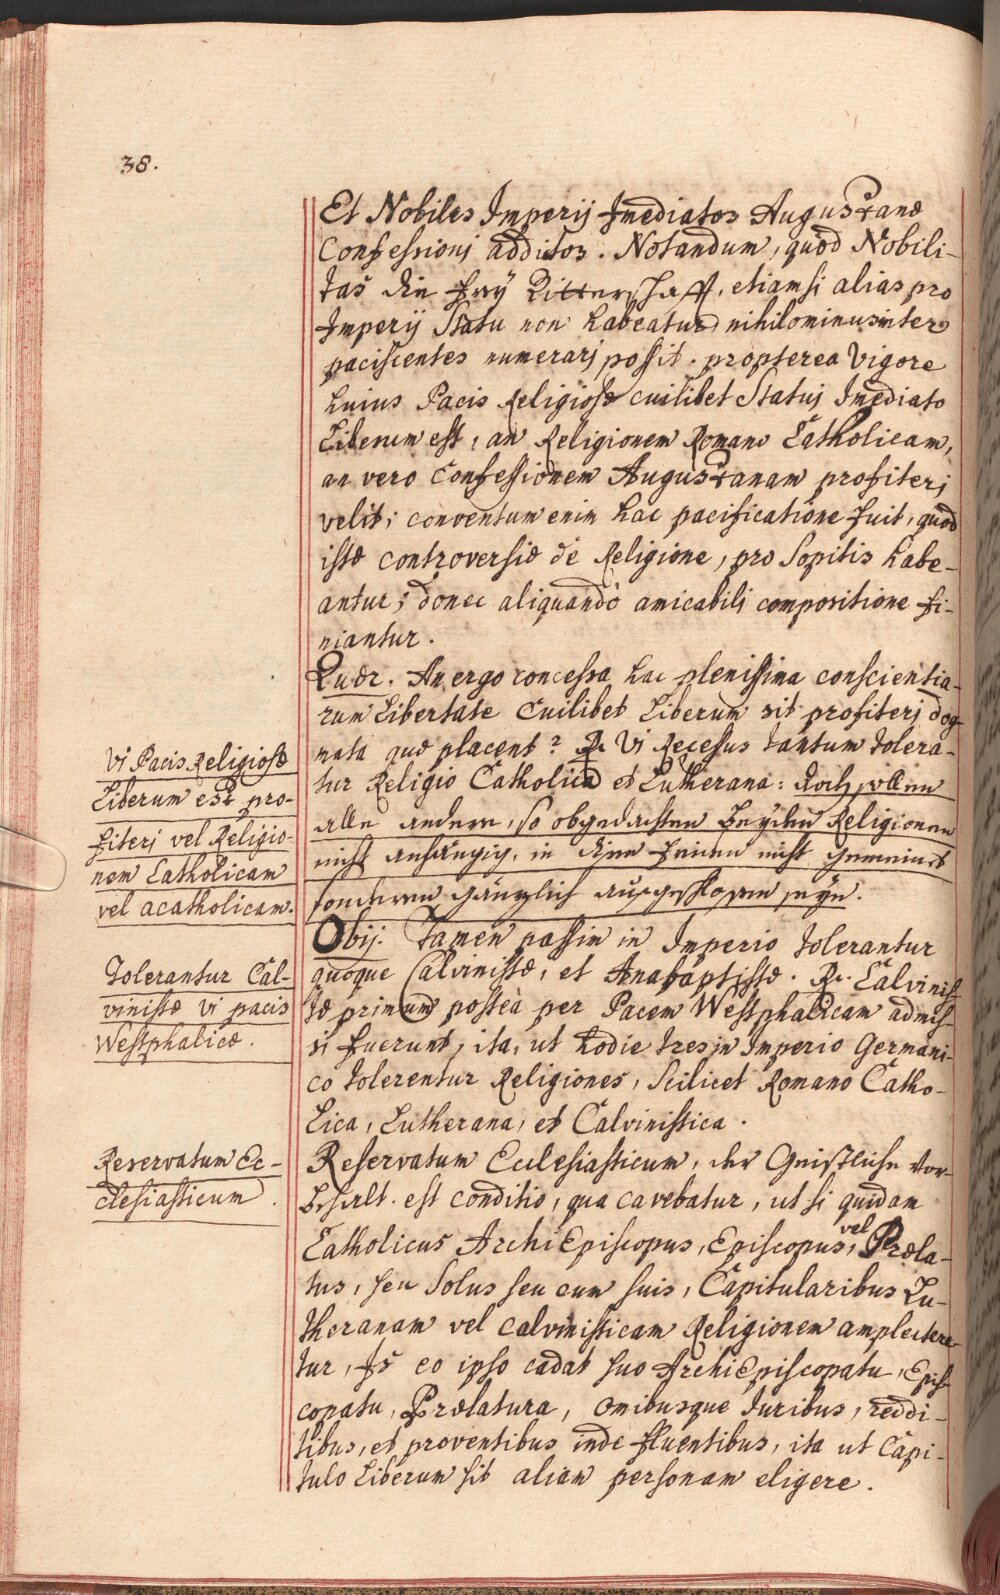 38.
Et Nobiles Imperij Imediatos Augustanæ
Confessioni additos. Notandum, quòd Nobili-
tas die freÿ Ritterschafft, etiamsi alias pro
Imperij Statu non habeatur, nihilominus inter
paciscentes numerari possit. propterea Vigore
huius Pacis Religiosæ cuilibet Statui Imediato
Liberum est, an Religionem Romano Catholicam,
an vero Confessionem Augustanam profiteri
velit; conventum enim hac pacificatione fuit, quòd
istæ controversiæ de Religione, pro Sopitis habe-
antur; donec aliquandò amicabili compositione fi-
niantur.
Quær. An ergo concessa hac plenissima conscientia-
rum Libertate Cuilibet Liberum sit profiteri dog-
mata quæ placent? R. Vi Recessus tantum tolera-
tur Religio Catholica et Lutherana: doch sollen
alle andere, so obgedachten beyden Religionen
nicht anhängig, in dem frieden nicht gemeinet
sonderen gäntzlich ausgeschlossen seÿn.
Obij. Tamen passim in Imperio tolerantur
quoque Calvinistæ, et Anabaptistæ. R. Calvinis-
tæ primum posteà per Pacem Westphalicam admis-
si fuerunt, ita, ut hodie tres in Imperio Germani-
co tolerentur Religiones, Scilicet Romano Catho-
Lica, Lutherana, et Calvinistica.
Reservatum Ecclesiasticum, der Geistliche Vor-
behalt. est conditio, qua cavebatur, ut si quidam
Catholicus ArchiEpiscopus, Episcopus, vel Præla-
tus, seu Solus seu cum suis, Capitularibus Lu-
theranam vel calvinisticam Religionem amplectere-
tur, Is eo ipso cadat suo ArchiEpiscopatu, Epis-
copatu, Prælatura, omibusque Iuribus, reddi-
tibus, et proventibus inde fluentibus, ita ut Capi-
tulo Liberum sit aliam personam eligere.
Vi Pacis Religiosæ
Liberum est pro-
fiteri vel Religio-
nem Catholicam
vel acatholicam.
Tolerantur Cal-
vinistæ vi pacis
Westphalicæ.
Reservatum Ec-
clesiasticum.